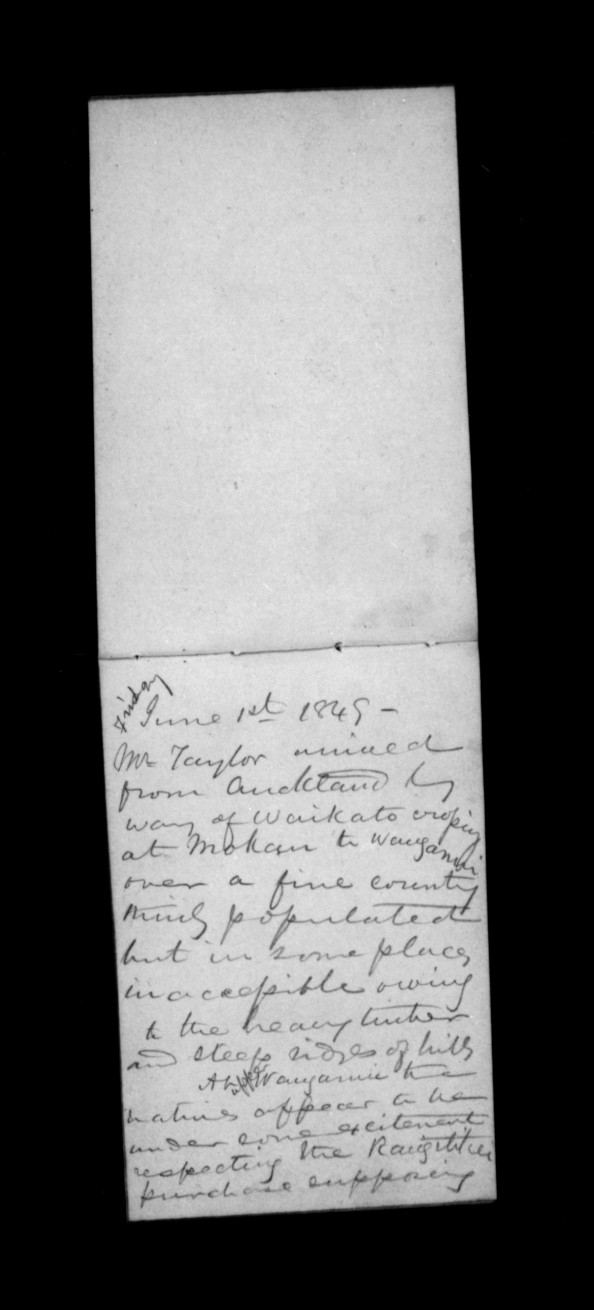 Friday
June 1st 1849 -
Mr Taylor arrived
from Auckland by
way of Waikato crossing
at Mokau to Wanganui
over a fine country
thinly populated
but in some places
inaccessible owing
to the heavy timber
and steep ridges of hills
At upper Wanganui the
natives appear to be
under some excitement
respecting the Rangitikei
purchase supposing